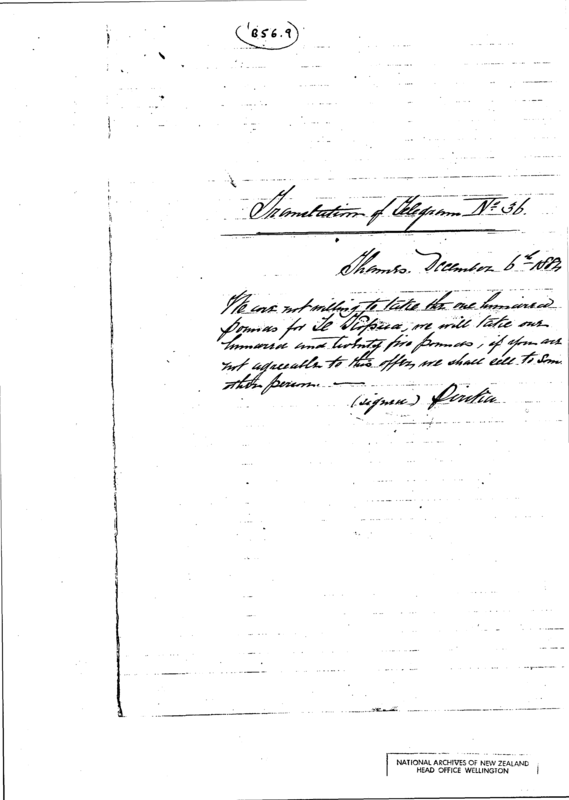 B56.9
Translation of Telegram No 36.
Thames. December 6th 1884
We are not willing to take the one hundred
pounds for Te we will take one
hundred and twenty five pounds, if you are
not agreeable to this offer we shall sell to som
other person. —
(signed)
NATIONAL ARCHIVES OF NEW ZEALAND
HEAD OFFICE WELLINGTON